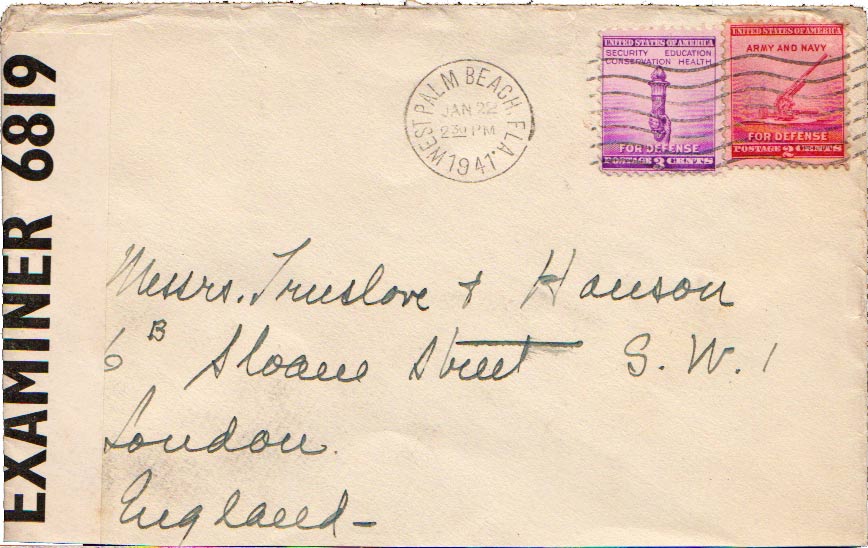 EXAMINER 6819
WEST PALM BEACH, FLA.
JAN 22
2 30 PM
1941
UNITED STATES OF AMERICA
SECURITY EDUCATION
CONSERVATION HEALTH
FOR DEFENSE
POSTAGE 3 CENTS
UNITED STATES OF AMERICA
ARMY AND NAVY
FOR DEFENSE
POSTAGE 2 CENTS
Messrs. Truslove + Hanson
6B Sloane Street S.W.1
London.
England-